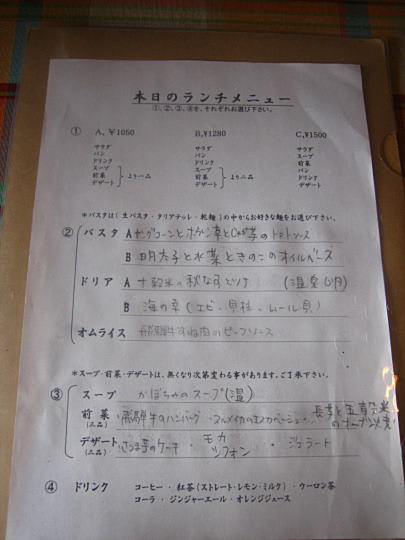 本日のランチメニュー
①、②、③、④を、それぞれお選び下さい。
① A, ¥1050 B,¥1280 C,¥1500
サラダ サラダ サラダ
パン パン パン
ドリンク ドリンク スープ
スープ スープ 前菜
前菜 より一品 前菜 より二品 ドリンク
デザート デザート デザート
*パスタは(生パスタ・タリアテッレ・乾麺)の中からお好きな麺をお選び下さい。
② パスタ A ヤングコーンとホウレン草と のトマトソース
B 明太子と水菜ときのこのオイルベース
ドリア A 十穀米の秋なすドリア (温泉卵)
B 海の幸(エビ・貝柱・ムール貝)
オムライス 飛騨牛すね肉のビーフソース
*スープ・前菜・デザートは、無くなり次第変わる事があります。ご了承下さい。
③ スープ かぼちゃのスープ(温)
前菜 飛騨牛のハンバーグ・ のエスカベーシュ・長芋と
(二品)
デザート さつま芋のケーキ・モカシフォン・ジェラート
(二品)
④ ドリンク コーヒー・紅茶(ストレート・レモン・ミルク)・ウーロン茶
コーラ・ジンジャーエール・オレンジジュース